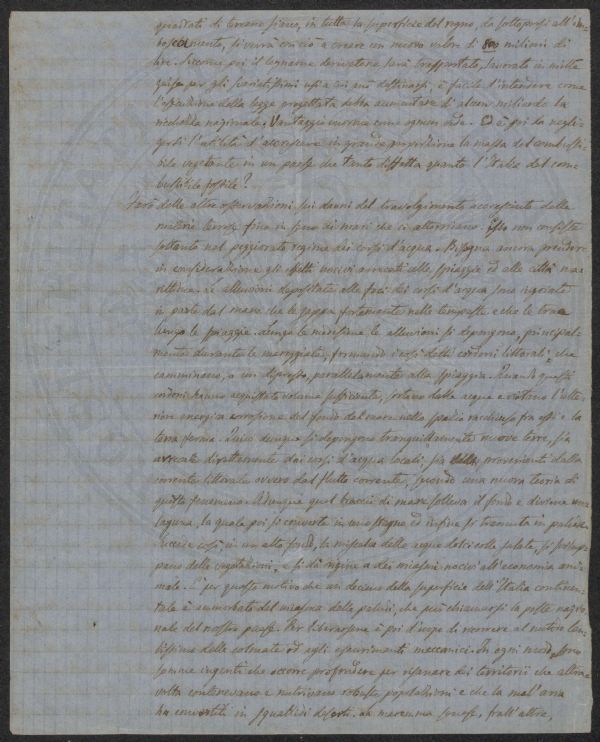 quadrati di terreno sicuro, in tutta la superficie del regno, da sottoporsi all'im-
boscamento, si verrà con ciò a creare un nuovo valore di 800 milioni di
lire. Siccome poi il legname derivatone sarà trasportato, lavorato in mille
guise per gli svariatissimi usi a cui può destinarsi, è facile d'intendere come
l'esecuzione della legge progettata debba aumentare di alcuni miliardi la
ricchezza nazionale. Vantaggio enorme come ognun vede. Ed è poi da negli-
gersi l'utilità d'accrescere in grande proporzione la massa del combusti-
bile vegetante in un paese che tanto difetta quanto l'Italia del com-
bustibile fossile?
Farò delle altre osservazioni sui danni del travolgimento accresciuto delle
materie terrose fino in seno dei mari che ci attorniano. Esso non consiste
soltanto nel peggiorato regime dei corsi d'acqua. Bisogna ancora prendere
in considerazione gli effetti nocivi arrecati alle spiaggie ed alle città ma-
rittime. Le alluvioni depositate alle foci dei corsi d'acqua sono rigettate
in parte dal mare che le zappa fortemente nelle tempeste e che le trae
lungo le spiaggie. Lungo le medesime le alluvioni si depongono, principal-
mente durante le mareggiate, formando i così detti cordoni littorali, che
camminano, a un dipresso, parallelamente alla spiaggia. Quando questi
cordoni hanno acquistato volume sufficiente, sortono dalla acqua e evitano l'ulte-
riore energica corrosione del fondo del mare nello spazio racchiuso fra essi e la
terra ferma. Quivi dunque si depongono tranquillamente nuove terre, sia
arrecate direttamente dai corsi d'acqua locali, sia provenienti dalla
corrente littorale ovvero dal flutto corrente, secondo una nuova teoria di
questo fenomeno. Adunque quel braccio di mare solleva il fondo e diviene una
laguna, la quale poi si converte in uno stagno ed infine si tramuta in palude.
Succede così, in un alto fondo, la miscela delle acque dolci colle salate, si svilup-
pano delle vegetazioni, e si dà origine a dei miasmi nocivi all'economia ani-
male. È per questo motivo che un decimo della superficie dell'Italia continen-
tale è ammorbato dal miasma delle paludi, che può chiamarsi la peste nazio-
nale del nostro paese. Per liberarsene è poi d'uopo di ricorrere al metodo len-
tissimo delle colmate od agli esaurimenti meccanici. In ogni modo sono
somme ingenti che occorre profondere per risanare dei territorii che altra
volta contenevano e nutrivano robuste popolazioni e che la mal'aria
ha convertiti in squallidi deserti. La maremma senese, frall'altre,